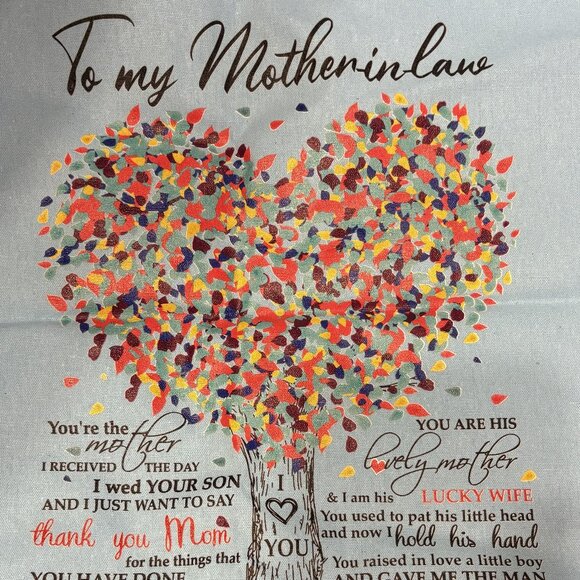 To my Mother-in-law
You're the
mother
I RECEIVED THE DAY
I wed YOUR SON
AND I JUST WANT TO SAY
thank you Mom
for the things that
YOU HAVE DONE
I
YOU
YOU ARE HIS
lovely mother
& I am his LUCKY WIFE
You used to pat his little head
and now I hold his hand
You raised in love a little boy
AND GAVE ME THE MAN